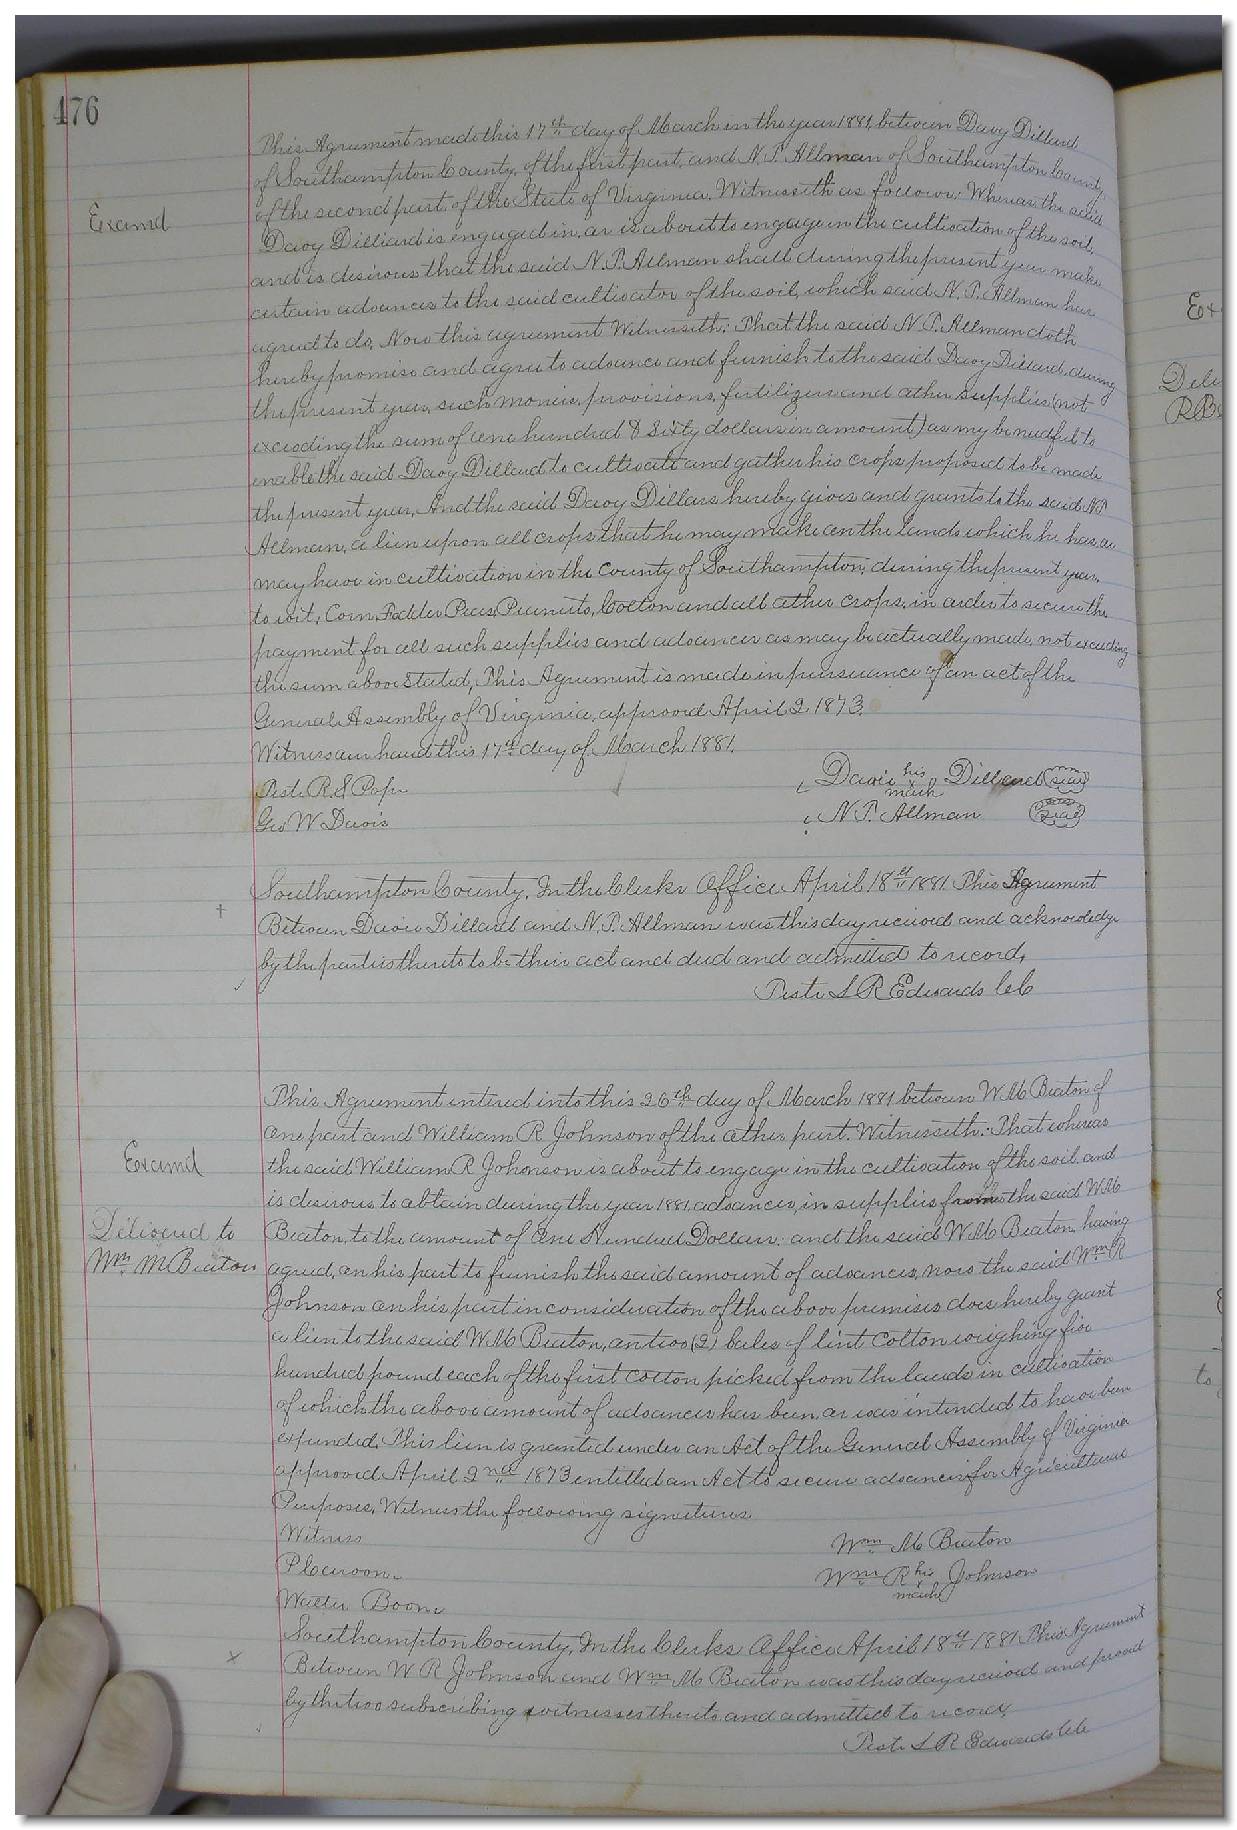 476
This Agreement made this 17th day of March in the year 1881, between Davy Dillard
of Southampton County, of the first part, and N. P. Allman of Southampton County,
Examd
of the second part, of the State of Virginia. Witnesseth as follows: Whereas the said
Davy Dilliard is engaged in, or is about to engage in the cultivation of the soil,
and is desirous that the said N. P. Allman shall during the present year make
certain advances to the said cultivator of the soil, which said N. P. Allman has
agreed to do, Now this agreement Witnesseth: That the said N. P. Allman doth
hereby promise and agree to advance and furnish to the said Davy Dillard, during
the present year, such monies, provisions, fertilizers and other supplies (not
exceeding the sum of one hundred & Sixty dollars in amount) as my be needful to
enable the said Davy Dillard to cultivate and gather his crops proposed to be made
the present year, And the said Davy Dillard hereby gives and grants to the said N. P.
Allman, a lien upon all crops that he may make on the lands which he has, or
may have in cultivation in the County of Southampton, during the present year,
to wit, Corn, Fodder Peas, Peanuts, Cotton and all other crops, in order to secure the
payment for all such supplies and advances as may be actually made, not exceeding
the sum above stated, This Agreement is made in pursuance of an act of the
General Assembly of Virginia, approved April 2. 1873.
Witness our hand this 17th day of March 1881.
Test. R. S. Pope
Davie his mark Dillard (Seal)
Geo W Davis
N. P. Allman (Seal)
Southampton County, In the Clerks Office April 18th 1881 This Agreement
Between Davie Dillard and N. P. Allman was this day received and acknowledge
by the parties thereto to be their act and deed and admitted to record,
Teste L R Edwards CC
This Agreement entered into this 26th day of March 1881 between W M Beaton of
one part and William R Johnson of the other part. Witnesseth: That whereas
Examd
the said William R Johnson is about to engage in the cultivation of the soil and
is desirous to obtain during the year 1881 advances, in supplies from the said W M
Delivered to
Beaton, to the amount of One Hundred Dollars: and the said W M Beaton having
Wm M Beaton
agreed, on his part to furnish the said amount of advances, now the said Wm R
Johnson on his part in consideration of the above premises does hereby grant
a lien to the said W M Beaton, on two (2) bales of lint cotton weighing five
hundred pound each of the first cotton picked from the lands in cultivation
of which the above amount of advances has been, or was intended to have been
expended. This lien is granted under an Act of the General Assembly of Virginia
approved April 2nd 1873 entitled an Act to secure advances for Agricultural
Purposes. Witness the following signatures
Witness
Wm M Beaton
Wm R his mark Johnson
Walter Boone
Southampton County, In the Clerks Office April 18th 1881 This Agreement
Between W R Johnson and Wm M Beaton was this day received and proved
by the two subscribing witnesses thereto and admitted to record,
Teste L R Edwards CC